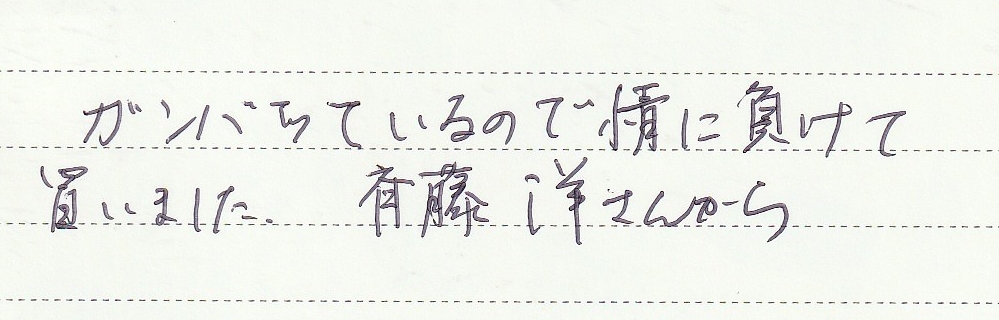 ガンバっているので情に負けて
買いました. 斉藤 洋さんから